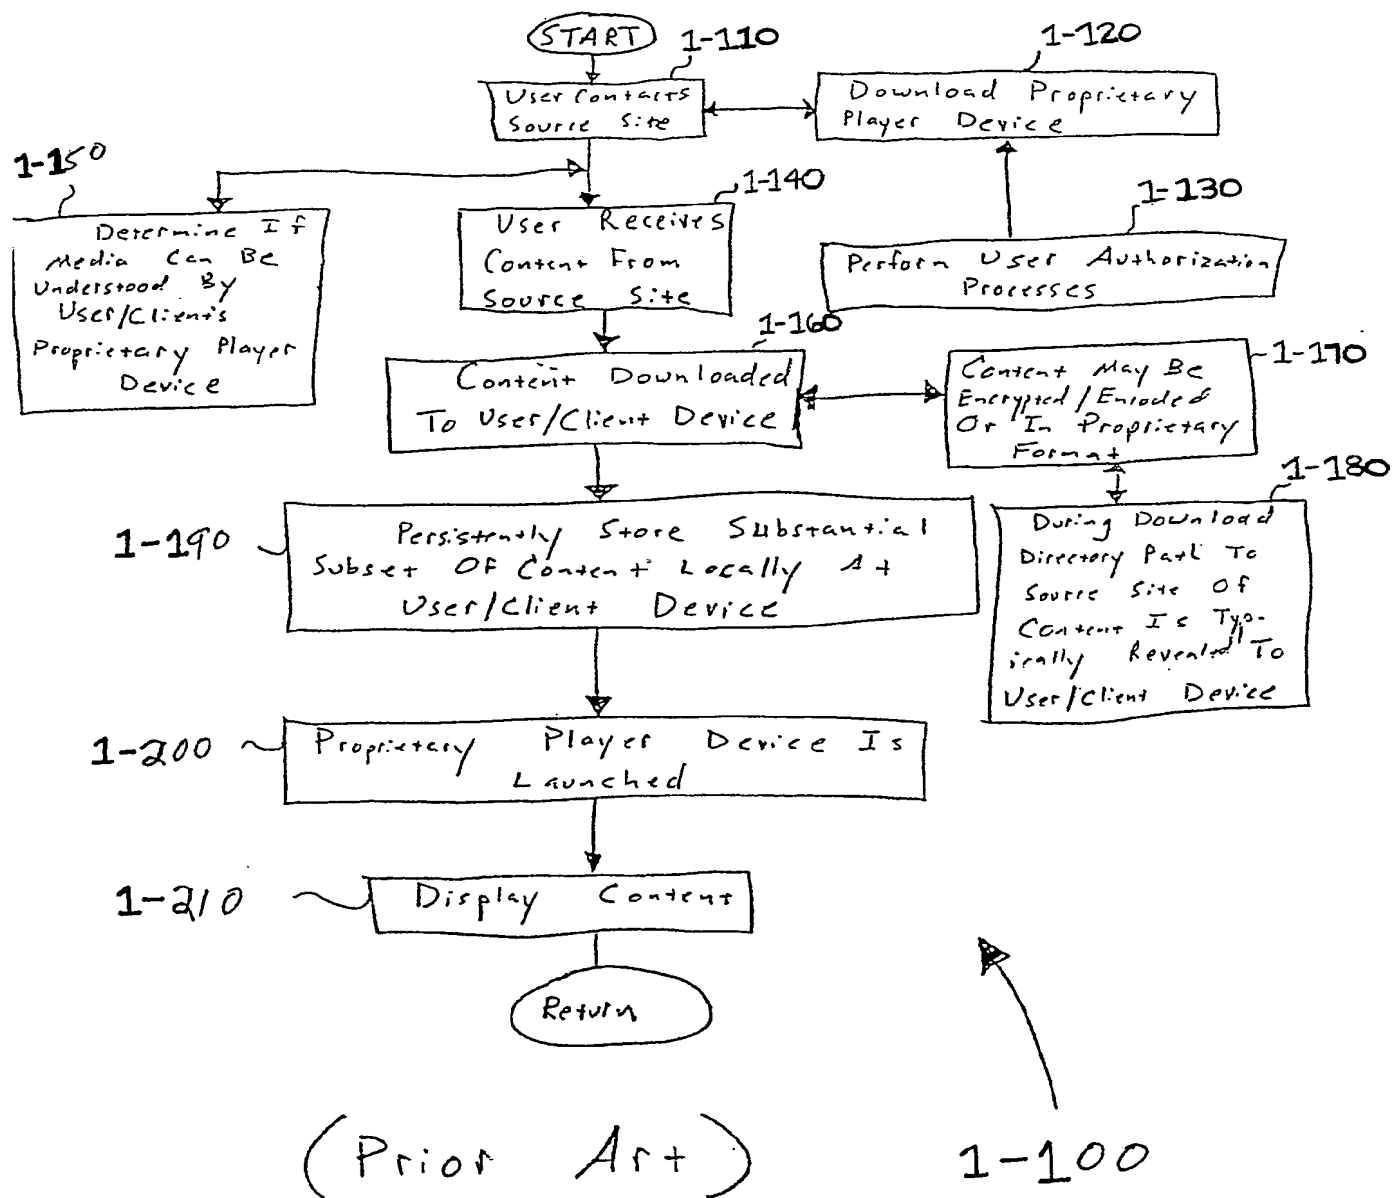 START
1-110
User Contacts
Source Site
1-120
Download Proprietary
Player Device
1-130
Perform User Authorization
Processes
1-150
Determine If
Media Can Be
Understood By
User/Clients
Proprietary Player
Device
1-140
User Receives
Content From
Source Site
1-160
Content Downloaded
To User/Client Device
1-170
Content May Be
Encrypted/Encoded
Or In Proprietary
Format
1-180
During Download
Directory Path To
Source Site Of
Content Is Typ-
ically Revealed To
User/Client Device
1-190
Persistently Store Substantial
Subset Of Content Locally At
User/Client Device
1-200
Proprietary Player Device Is
Launched
1-210
Display Content
Return
(Prior Art)
1-100